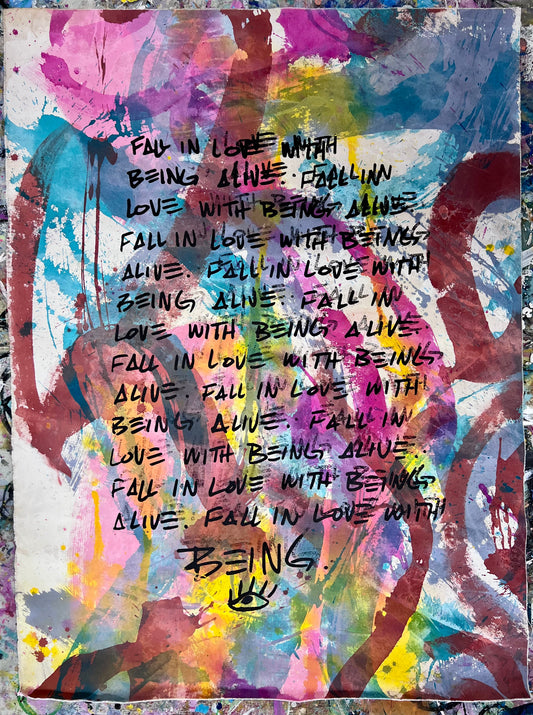 FALL IN LOVE WITH
BEING ALIVE. FALL IN
LOVE WITH BEING ALIVE
FALL IN LOVE WITH BEING
ALIVE. FALL IN LOVE WITH
BEING ALIVE. FALL IN
LOVE WITH BEING ALIVE.
FALL IN LOVE WITH BEING
ALIVE. FALL IN LOVE WITH
BEING ALIVE. FALL IN
LOVE WITH BEING ALIVE.
FALL IN LOVE WITH BEING
ALIVE. FALL IN LOVE WITH
BEING.